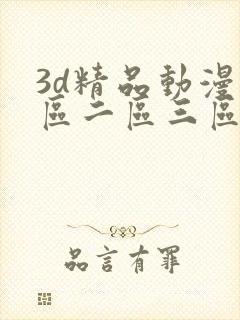 3d精品動漫
區二區三區
品言有罪